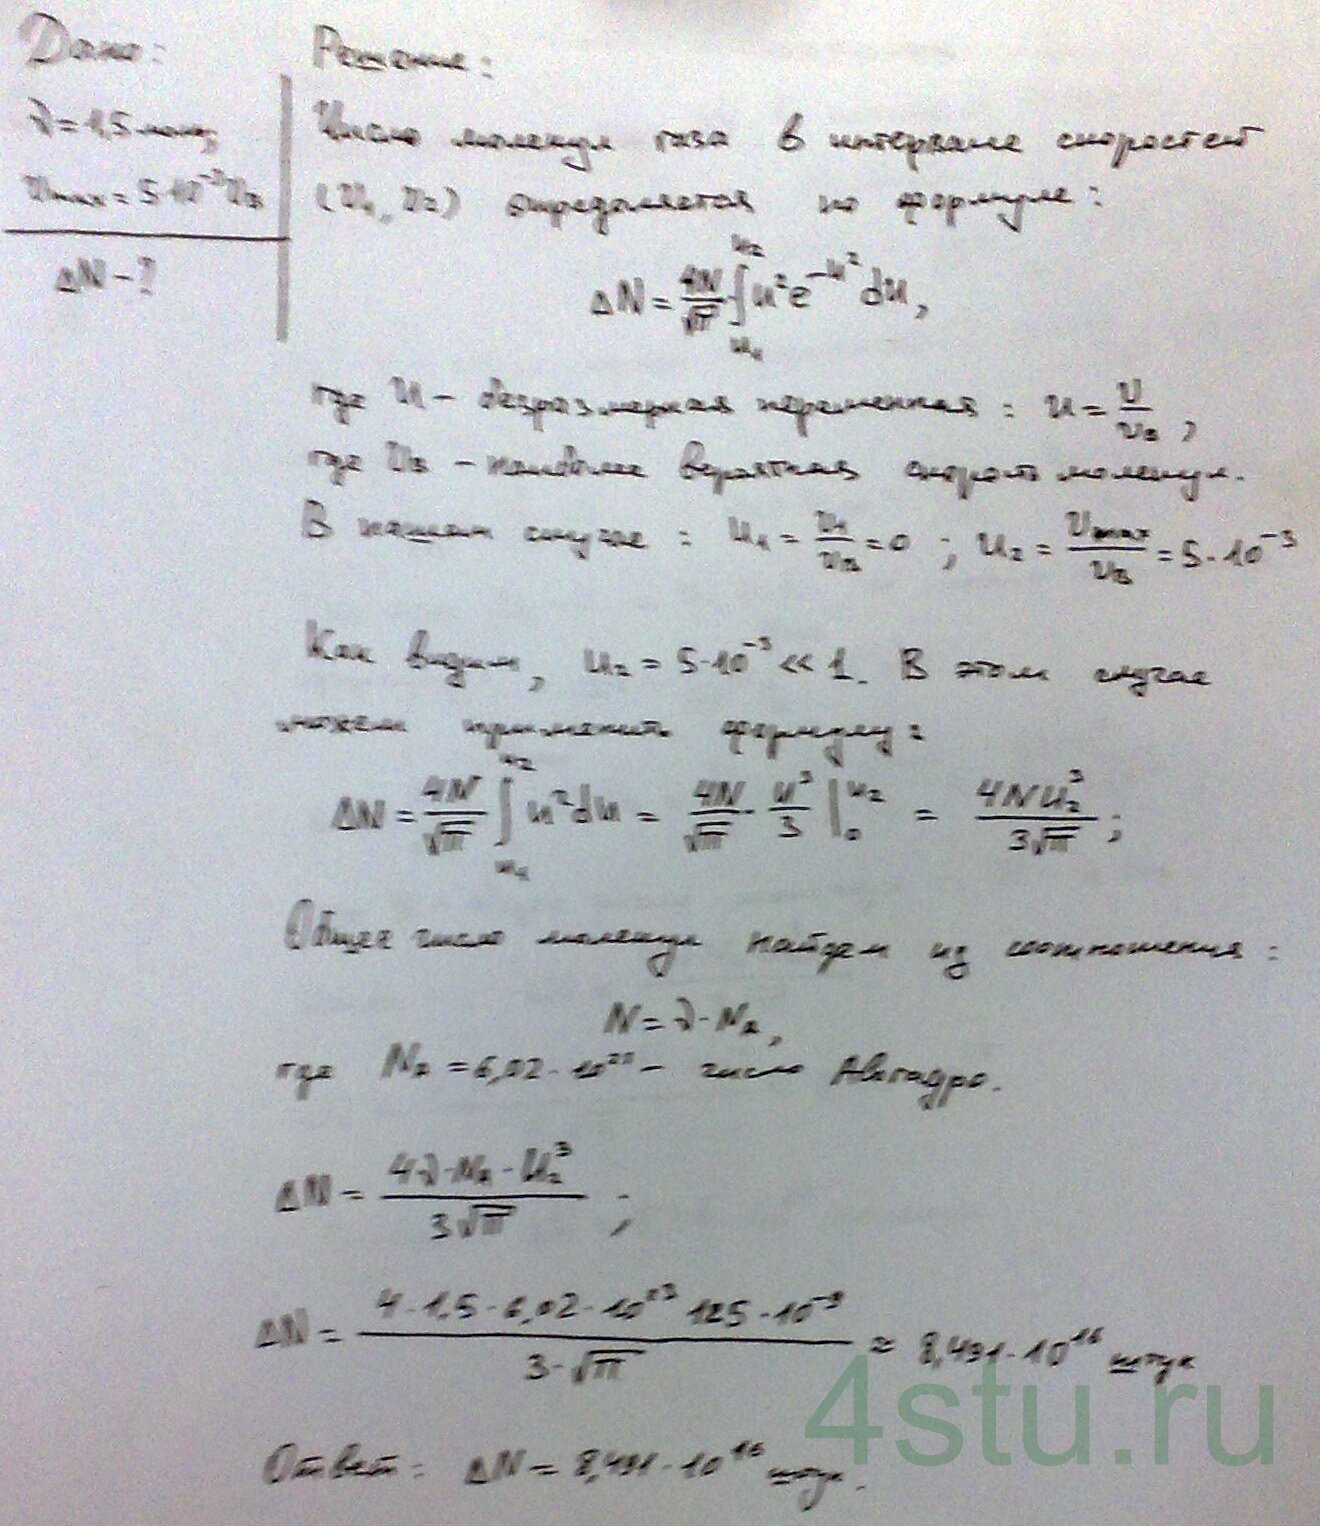 Дано:
ν = 1,5 моль;
υmax = 5·10⁻³ υв
ΔN - ?
Решение:
Число молекул газа в интервале скоростей
(υ₁, υ₂) определяется по формуле:
ΔN = 4N/√π ∫_{u₁}^{u₂} u² e^{-u²} du,
где u - безразмерная переменная: u = υ/υв,
где υв - наиболее вероятная скорость молекул.
В нашем случае: u₁ = υ₁/υв = 0; u₂ = υmax/υв = 5·10⁻³
Как видим, u₂ = 5·10⁻³ << 1. В этом случае
можем применить формулу:
ΔN = 4N/√π ∫_{u₁}^{u₂} u² du = 4N/√π · u³/3 |₀^{u₂} = 4Nu₂³/3√π;
Общее число молекул найдем из соотношения:
N = ν·Nₐ,
где Nₐ = 6,02·10²³ - число Авогадро.
ΔN = 4ν·Nₐ·u₂³/3√π;
ΔN = 4·1,5·6,02·10²³·125·10⁻⁹/3·√π ≈ 8,491·10¹⁶ штук
Ответ: ΔN = 8,491·10¹⁶ штук.
4stu.ru